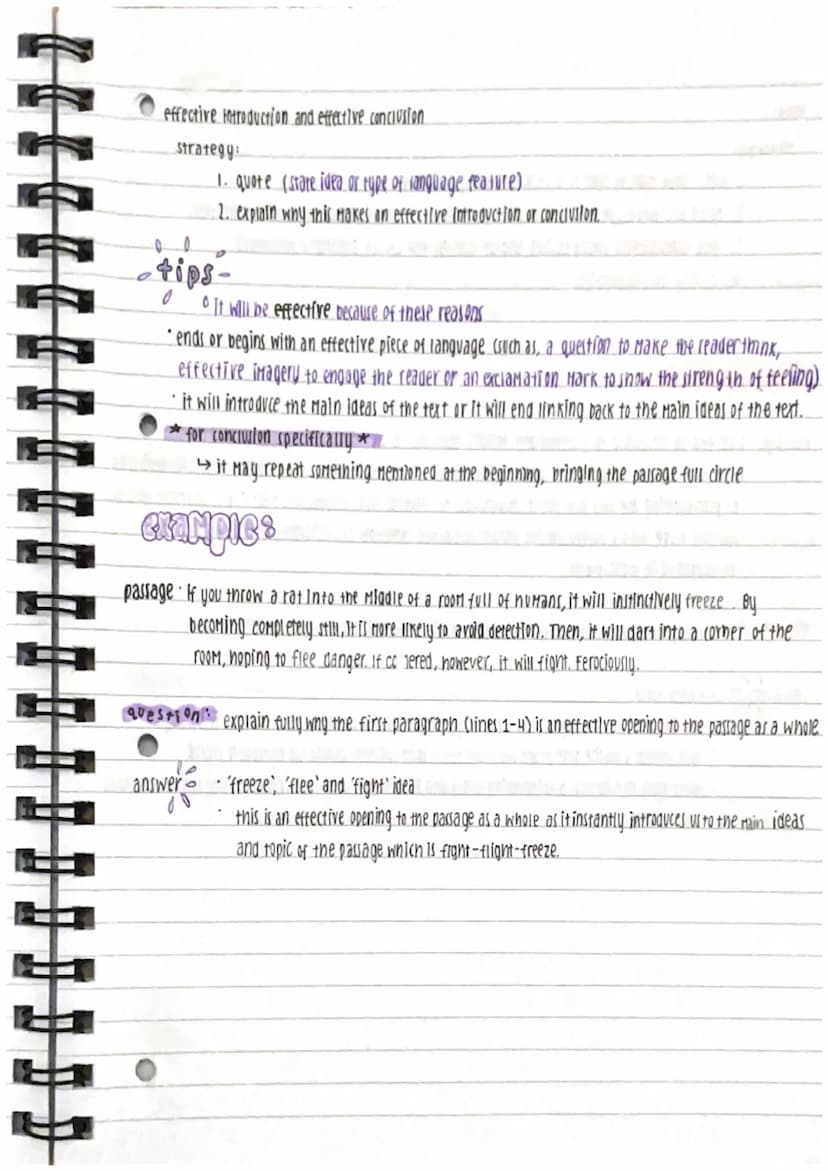 effective introduction and effective conclusion
strategy:
1. quote (state idea or type of language feature)
2. explain why this makes an effective introduction or conclusion.
tips
° it will be effective because of these reasons
· ends or begins with an effective piece of language (such as, a question to make the reader think,
effective imagery to engage the reader or an exclamation mark to show the strength of feeling)
· it will introduce the main ideas of the text or it will end linking back to the main ideas of the text.
* for conclusion specifically *
↳ it may repeat something mentioned at the beginning, bringing the passage full circle
example:
passage · If you throw a rat into the middle of a room full of humans, it will instinctively freeze. By
becoming completely still, it is more likely to avoid detection. Then, it will dart into a corner of the
room, hoping to flee danger. If cornered, however, it will fight. Ferociously.
question: explain fully why the first paragraph (lines 1-4) is an effective opening to the passage as a whole
answer · 'freeze', 'flee' and 'fight' idea
· this is an effective opening to the passage as a whole as it instantly introduces us to the main ideas
and topic of the passage which is fight-flight-freeze.